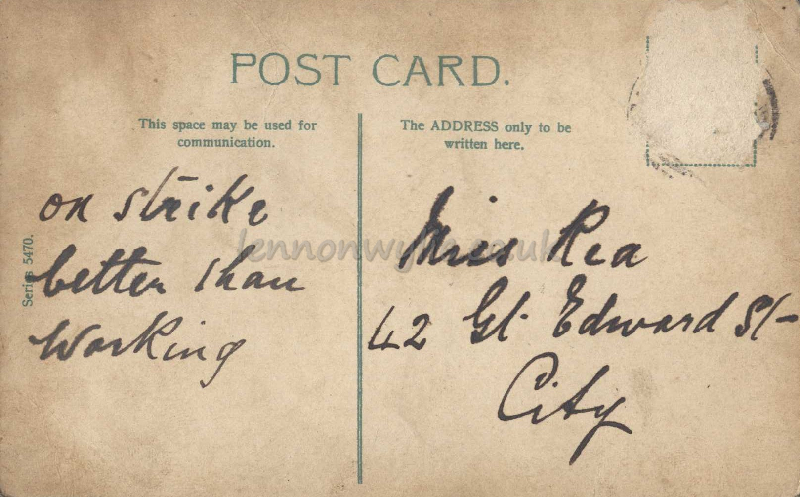 POST CARD.
This space may be used for
communication.
The ADDRESS only to be
written here.
Series 5470.
on strike
better than
working
Miss Rea
42 Gt. Edward St-
City
lennonwylie.co.uk